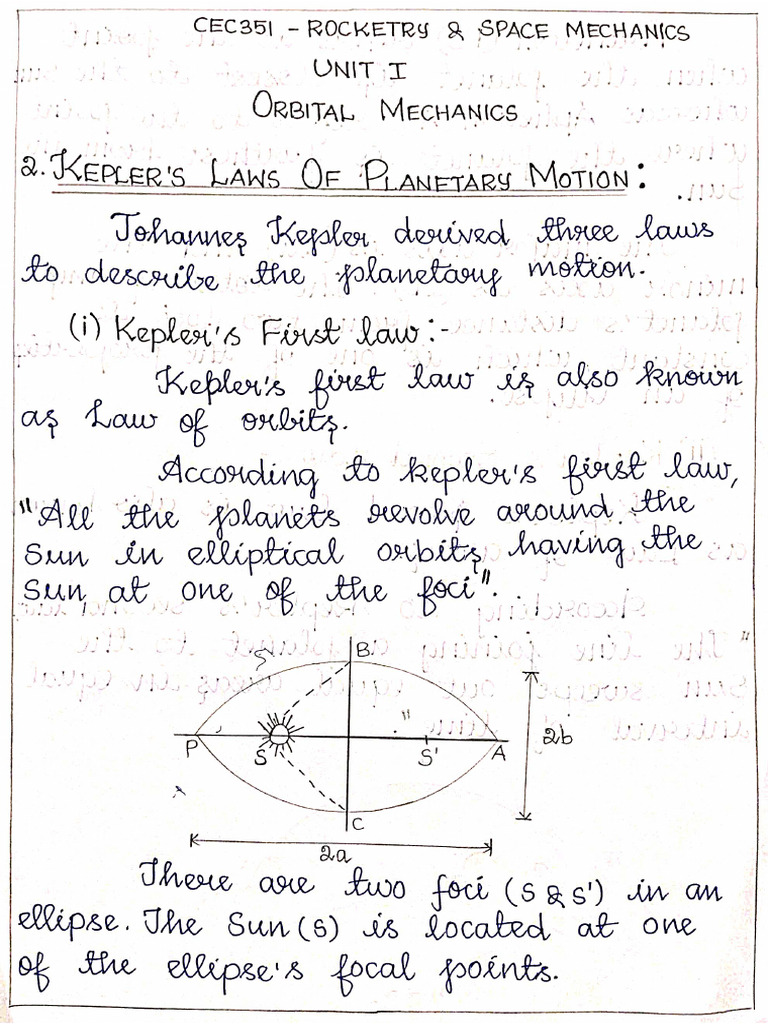 CEC351 - ROCKETRY & SPACE MECHANICS
UNIT I
ORBITAL MECHANICS
2. KEPLER'S LAWS OF PLANETARY MOTION:
Johannes Kepler derived three laws
to describe the planetary motion.
(i) Kepler's First law:-
Kepler's first law is also known
as Law of orbits.
According to kepler's first law,
"All the planets revolve around the
Sun in elliptical orbits having the
Sun at one of the foci".
B
P
S
S'
A
2b
C
2a
There are two foci (S & S') in an
ellipse. The Sun (S) is located at one
of the ellipse's focal points.